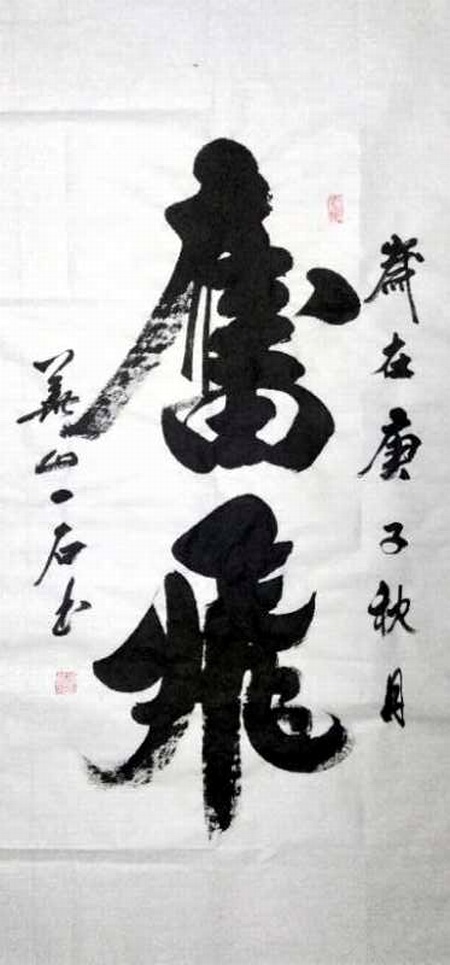 歲在庚子秋月
奮飛
華山一石书